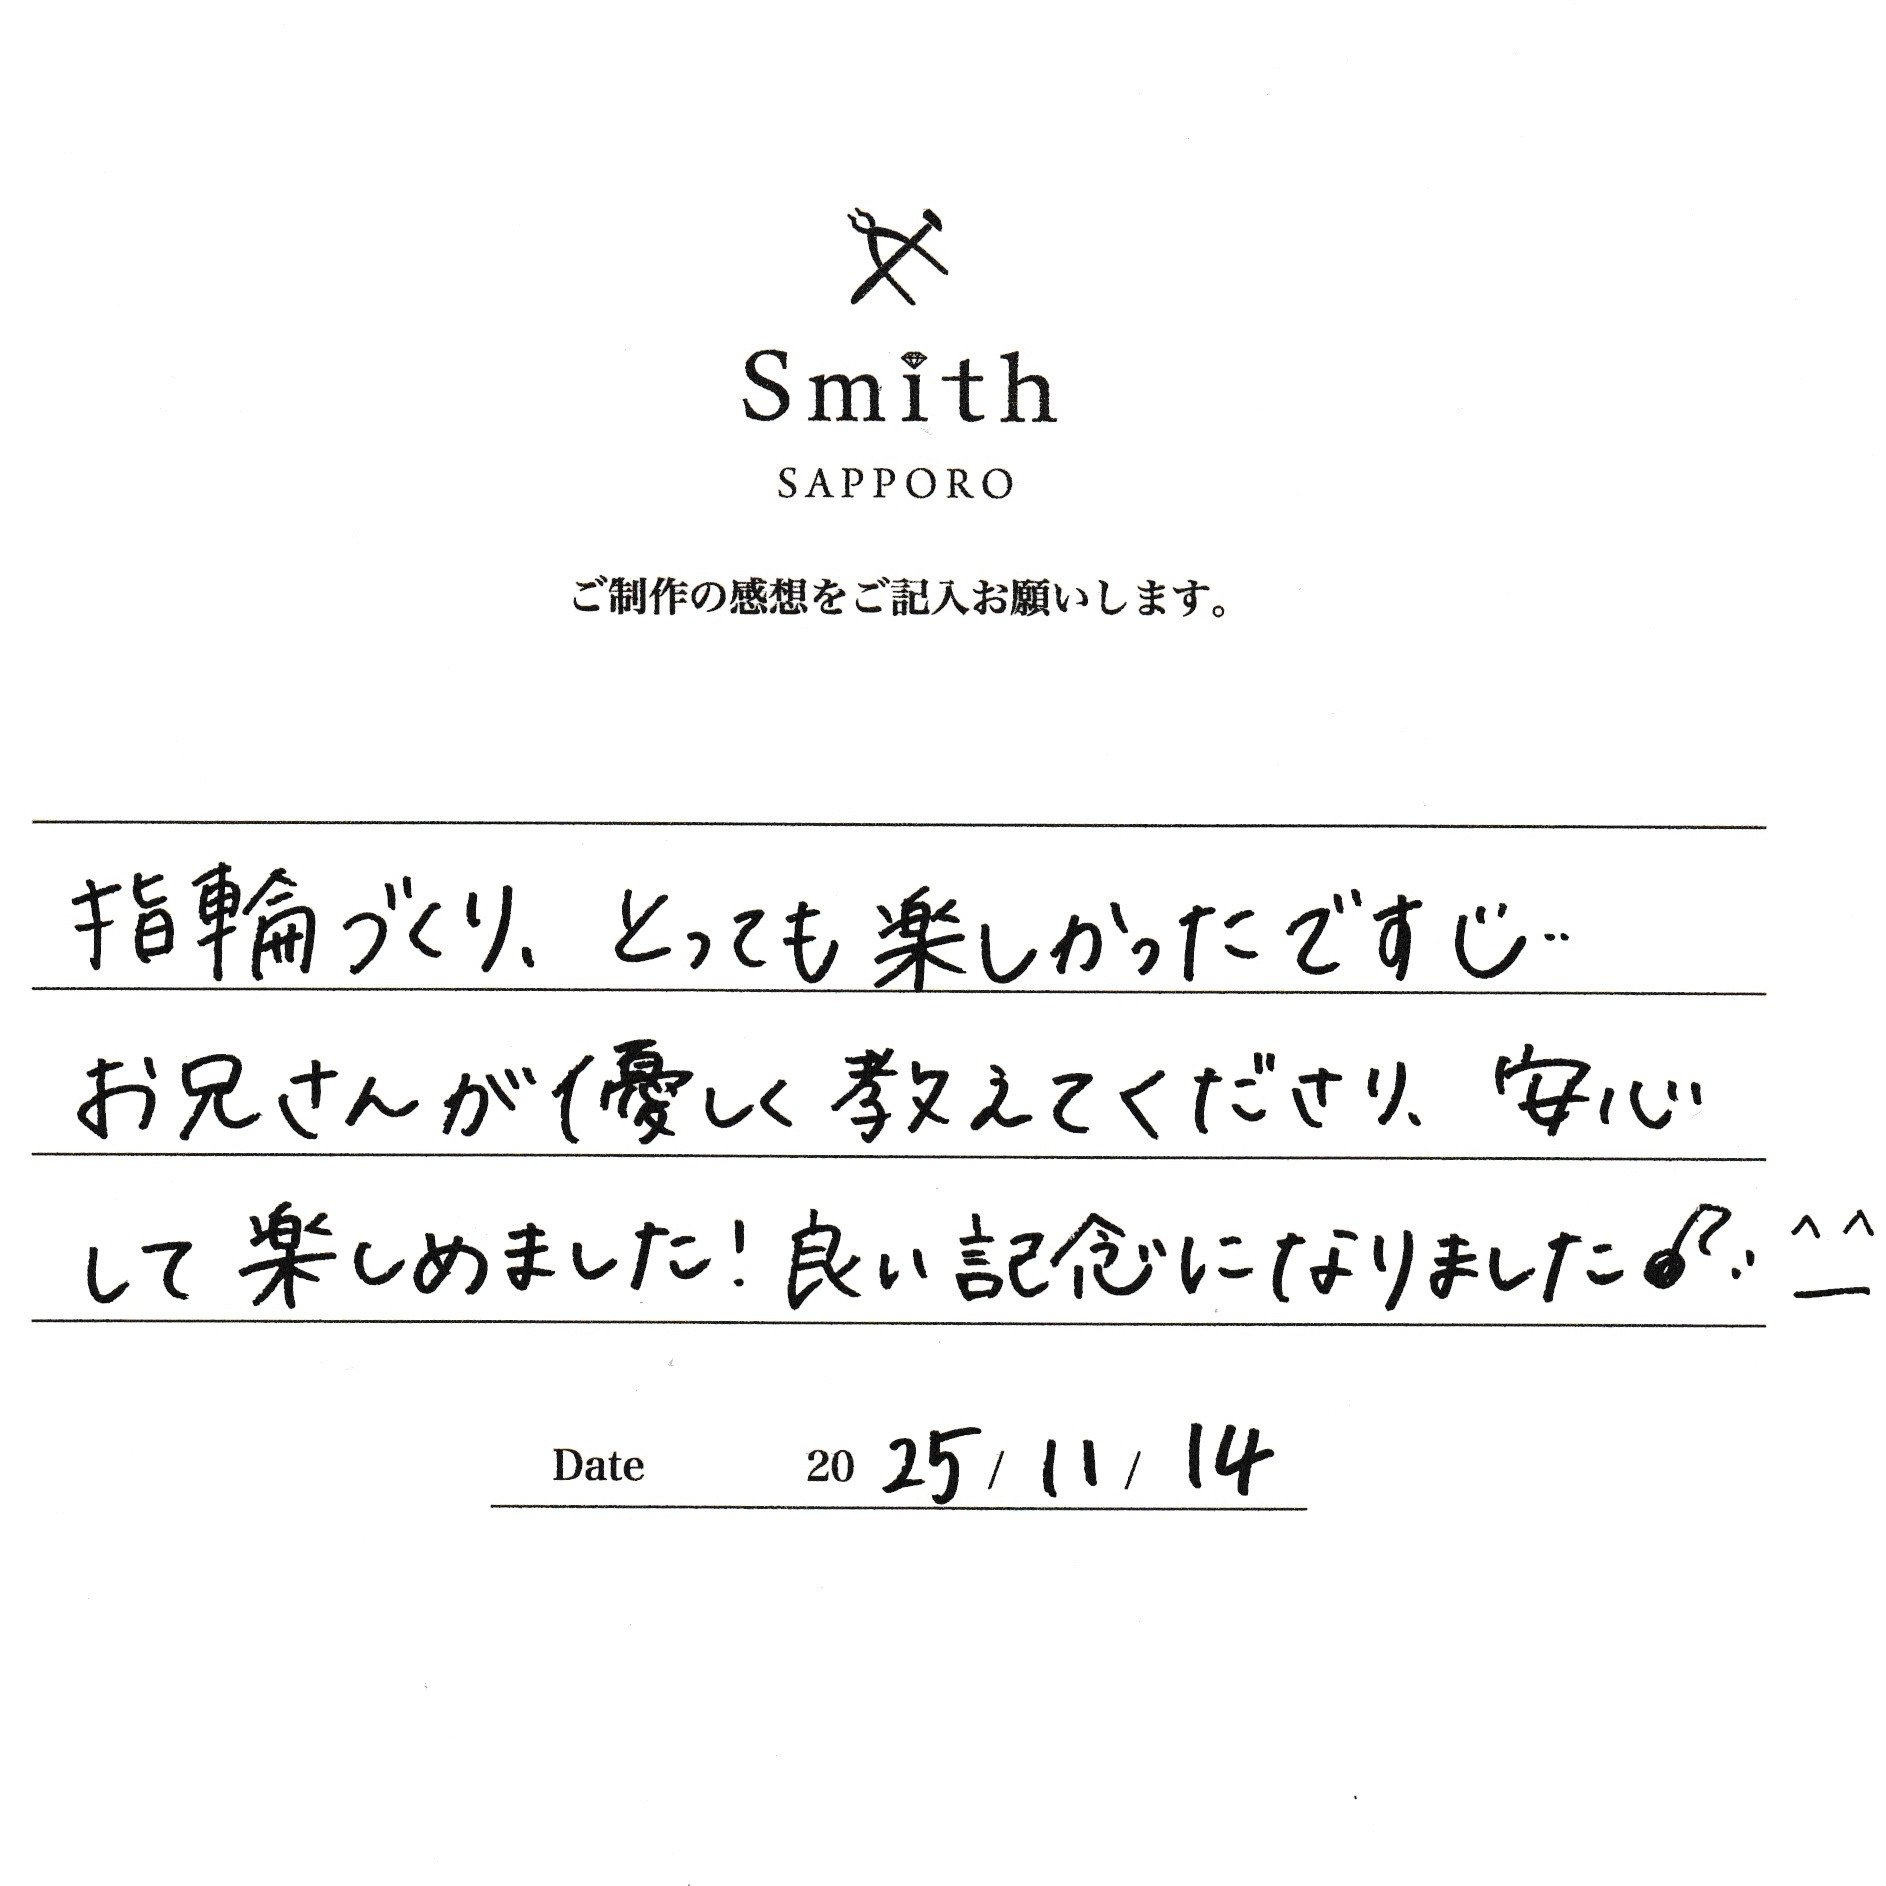 Smith
SAPPORO
ご制作の感想をご記入お願いします。
指輪づくり、とっても楽しかったですじ‥
お兄さんが優しく教えてくださり、安心
して楽しめました!良い記念になりました♪ ^_^
Date 2025/11/14